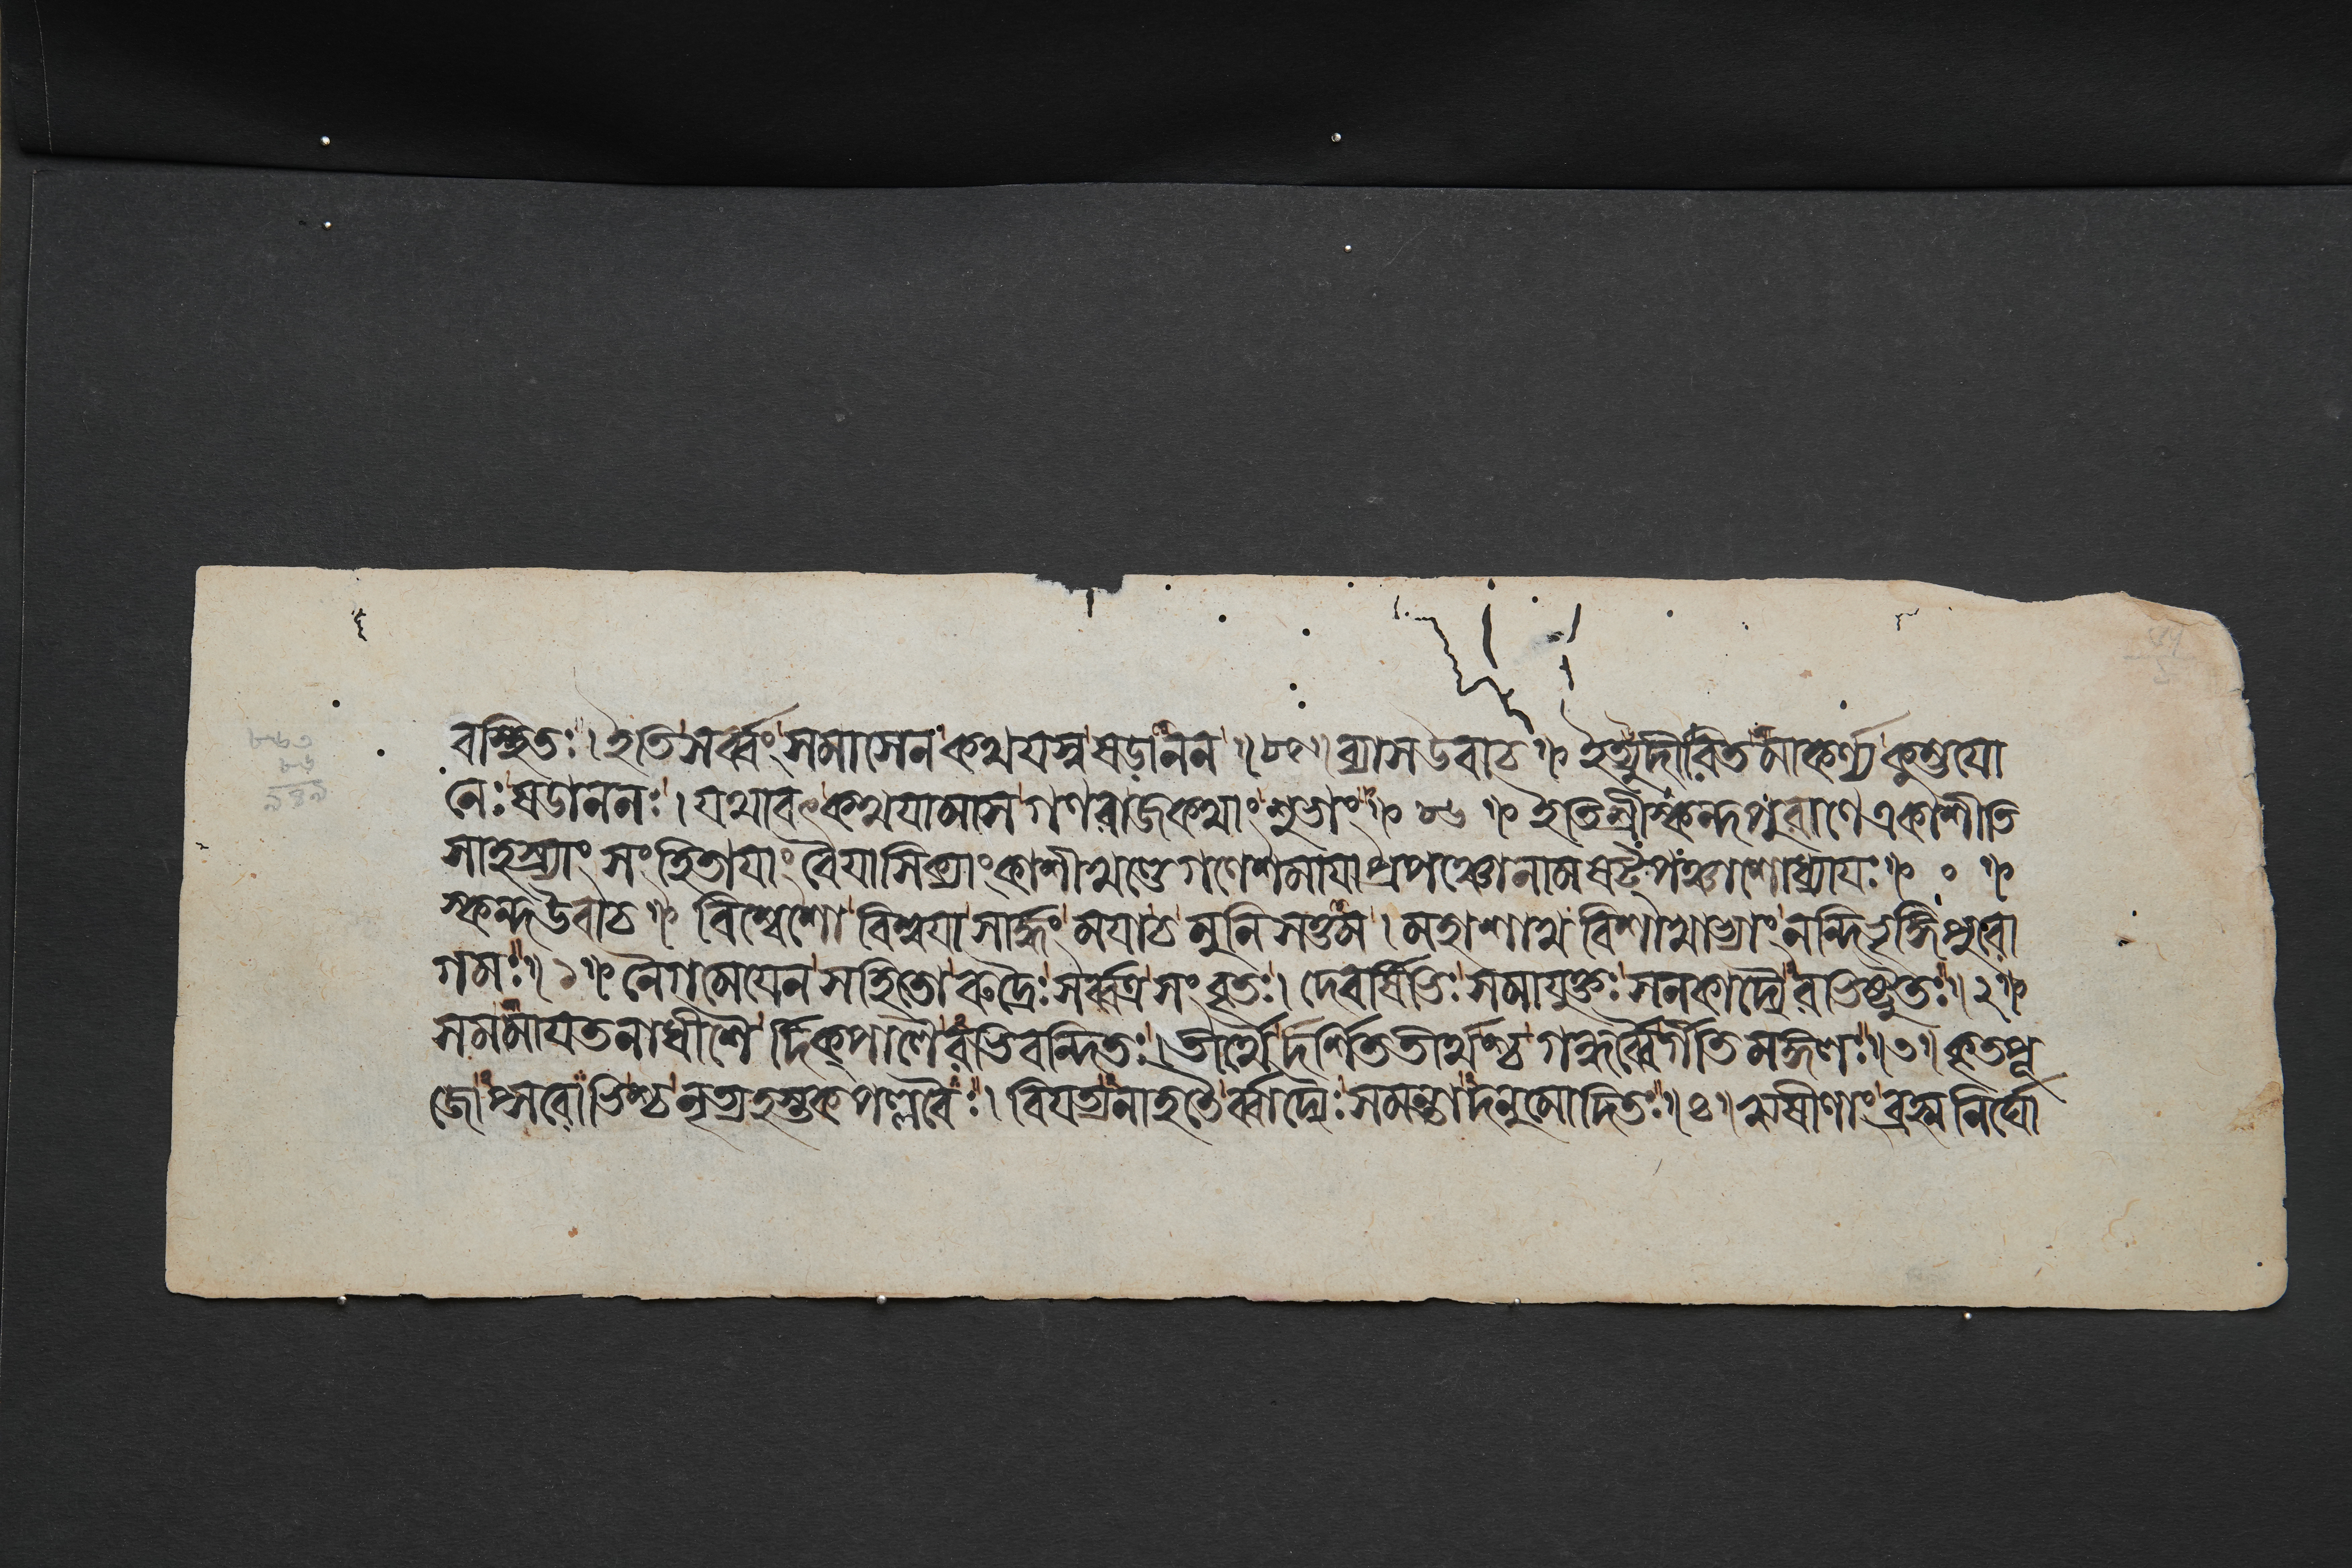 বস্থিতঃ। ইতি সর্ব্বং সমাসেন কথযস্ব ষডানন॥ ৮৫॥ ব্যাস উবাচ॥ ইত্যুদীরিতমাকর্ণ্য কুম্ভযো
নেঃ ষডাননঃ। যথাবৎ কথযামাস গণরাজকথাং শুভাং॥ ৮৬॥ ইতি শ্রীস্কন্দপুরাণে একাশীতি
সাহস্র্যাং সংহিতাযাং বৈযাসিক্যাং কাশীখণ্ডে গণেশমাযাপ্রপঞ্চোনাম ষট্পঞ্চাশোধ্যাযঃ॥ ০ ॥
স্কন্দ উবাচ॥ বিশ্বেশো বিশ্বযা সার্দ্ধং মযা চ মুনিসত্তম। মহাশাখবিশাখাভ্যাং নন্দিভৃঙ্গিপুরো
গমঃ॥১॥ নৈগমেযেন সহিতো রুদ্রৈঃ সর্ব্বত্র সংবৃতঃ। দেবর্ষিভিঃ সমাযুক্তঃ সনকাদ্যৈরভিষ্টুতঃ॥২॥
সমমাযতনাধীশৈর্দিক্পালৈরভিবন্দিতঃ। তীর্থৈর্দর্শিততীর্থশ্চ গন্ধর্ব্বৈর্গীতিমঙ্গলঃ॥৩॥ কৃতপূ
জোপ্সরোভিশ্চ নৃত্যহস্তকপল্লবৈঃ। বিযত্যনাহতৈর্ব্বাদ্যৈঃ সমন্তাদনুমোদিতঃ॥৪॥ ঋষীণাং ব্রহ্মনির্ঘো